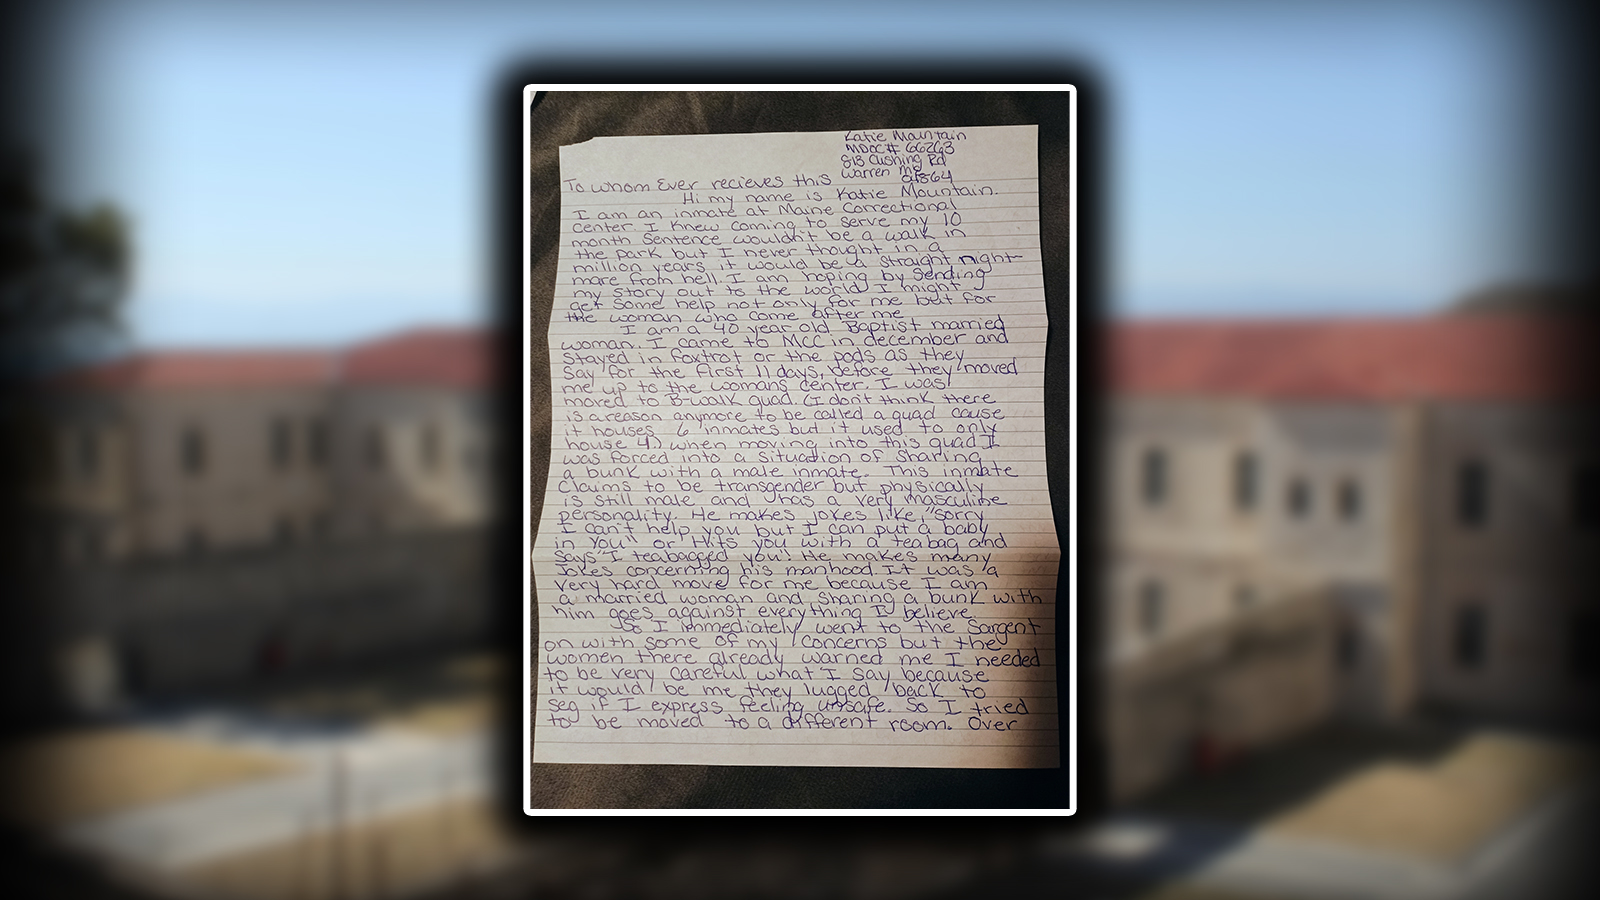 Katie Mountain
MDOC# 66263
818 Cushing Rd
Warren ME
04864
To whom Ever recieves this
Hi my name is Katie Mountain.
I am an inmate at Maine Correctional
Center. I Knew coming to serve my 10
month Sentence wouldn't be a walk in
the park but I never thought in a
million years it would be a straight night-
mare from hell. I am hoping by Sending
my story out to the world I might
get Some help not only for me but for
the woman who come after me
I am a 40 year old Baptist married
woman. I came to MCC in december and
Stayed in foxtrot or the pods as they
Say for the first 11 days, before they moved
me up to the womans center. I was
moved to B-walk quad. (I don't think there
is a reason anymore to be called a quad cause
it houses 6 inmates but it used to only
house 4) when moving into this quad I
was forced into a Situation of Sharing
a bunk with a male inmate. This inmate
Claims to be transgender but physically
is still male and has a very masculine
personality. He makes jokes like, "sorry
I can't help you but I can put a baby
in You" or Hits you with a teabag and
Says "I teabagged you! He makes many
Jokes concerning his manhood. It was a
Very hard move for me because I am
a married woman and Sharing a bunk with
him goes against everything I believe
So I immediately went to the Sargent
on with Some of my Concerns but the
women there already warned me I needed
to be very careful what I say because
it would be me they lugged back to
Seg if I express feeling unsafe. So I tried
to be moved to a different room. Over